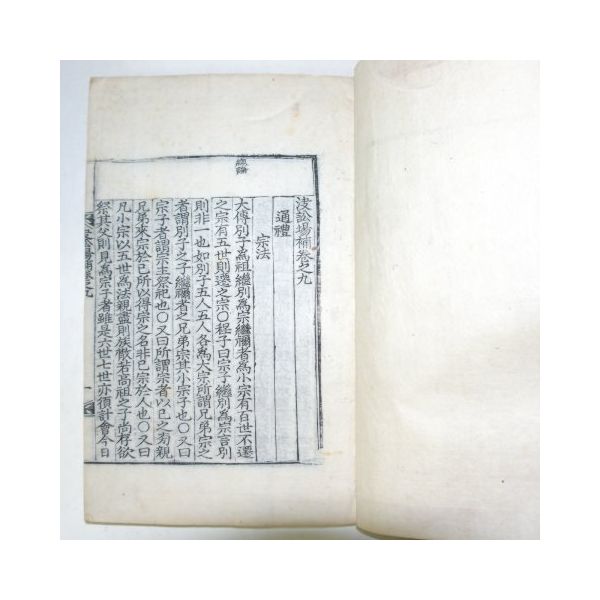 總論
決訟場補卷之九
通禮
宗法
大傳別子爲祖繼別爲宗繼禰者爲小宗有百世不遷
之宗有五世則遷之宗〇程子曰宗子繼別爲宗言別
則非一也如別子五人五人各爲大宗所謂兄弟宗之
者謂別子之子繼禰者之兄弟宗其小宗子也〇又曰
宗子者謂宗主祭祀也〇又曰所謂宗者以己之旁親
兄弟來宗於己所以得宗之名非己宗於人也〇又曰
凡小宗以五世爲法親盡則族散若高祖之子尚存欲
祭其父則見爲宗子者雖是六世七世亦須計會今日